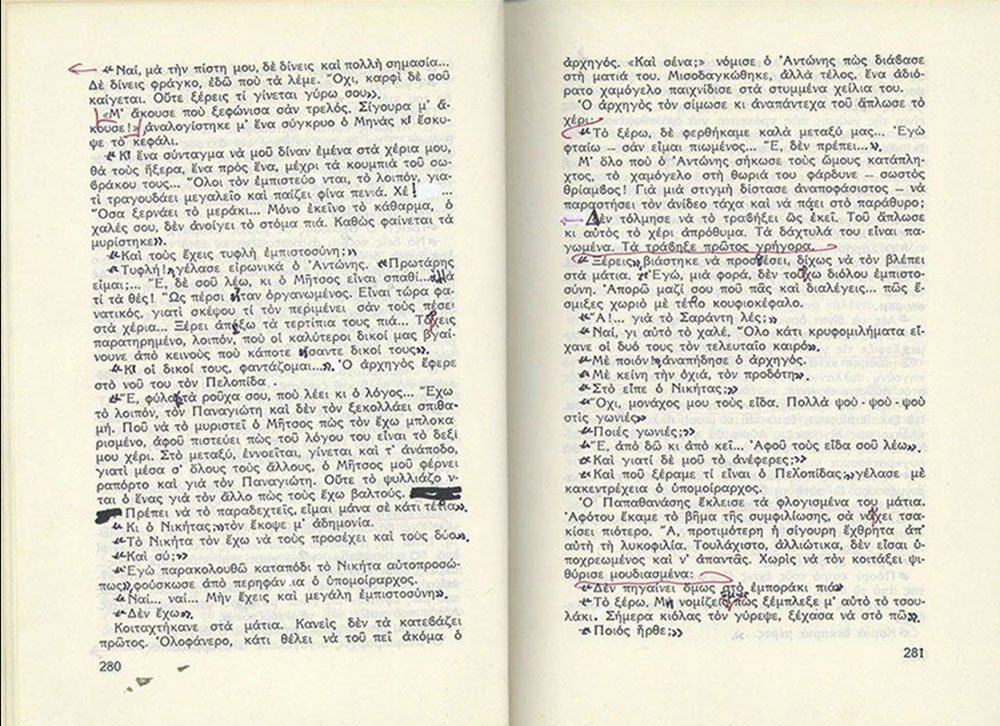 «Ναί, μὰ τὴν πίστη μου, δὲ δίνεις καὶ πολλὴ σημασία...
Δὲ δίνεις φράγκο, ἐδῶ ποὺ τὰ λέμε. Ὄχι, καρφὶ δὲ σοῦ
καίγεται. Οὔτε ξέρεις τί γίνεται γύρω σου».
«Μ' ἄκουσε ποὺ ξεφώνισα σὰν τρελός. Σίγουρα μ' ἄ-
κουσε!» ἀναλογίστηκε μ' ἕνα σύγκρυο ὁ Μηνάς κι ἔσκυ-
ψε τὸ κεφάλι.
«Κι ἕνα σύνταγμα νὰ μοῦ δίναν ἐμένα στὰ χέρια μου,
θὰ τοὺς ἤξερα, ἕνα πρὸς ἕνα, μέχρι τὰ κουμπιά τοῦ σω-
βράκου τους... Ὅλοι τὸν ἐμπιστεύονται, τὸ λοιπόν, για-
τὶ τραγουδάει μεγαλεῖο καὶ παίζει φίνα πενιά. Χέ! ...
Ὅσα ξερνάει τὸ μεράκι... Μόνο ἐκεῖνο τὸ κάθαρμα, ὁ
χαλές σου, δὲν ἀνοίγει τὸ στόμα πιά. Καθὼς φαίνεται τὰ
μυρίστηκε».
«Καὶ τοὺς ἔχεις τυφλὴ ἐμπιστοσύνη;»
«Τυφλή!» γέλασε εἰρωνικὰ ὁ Ἀντώνης. «Πρωτάρης
εἶμαι;... Ἔ, δὲ σοῦ λέω, κι ὁ Μῆτσος εἶναι σπαθί... Μὰ
τί τὰ θές! Ὥς πέρσι ἦταν ὀργανωμένος. Εἶναι τώρα φα-
νατικός, γιατὶ σκέψου τί τὸν περιμένει σὰν τοὺς πέσει
στὰ χέρια... Ξέρει ἀπέξω τὰ τερτίπια τους πιά... Τὄχεις
παρατηρημένο, λοιπόν, ποὺ οἱ καλύτεροι δικοί μας βγαί-
νουνε ἀπὸ κεινοὺς ποὺ κάποτε ἤσαντε δικοί τους».
«Κι οἱ δικοί τους, φαντάζομαι...». Ὁ ἀρχηγὸς ἔφερε
στὸ νοῦ του τὸν Πελοπίδα.
«Ἔ, φύλαγε τὰ ροῦχα σου, ποὺ λέει κι ὁ λόγος... Ἔχω
τὸ λοιπόν, τὸν Παναγιώτη καὶ δὲν τὸν ξεκολλάει σπιθα-
μή. Ποῦ νὰ τὸ μυριστεῖ ὁ Μῆτσος πὼς τὸν ἔχω μπλοκα
ρισμένο, ἀφοῦ πιστεύει πὼς τοῦ λόγου του εἶναι τὸ δεξί
μου χέρι. Στὸ μεταξύ, ἐννοεῖται, γίνεται καὶ τ' ἀνάποδο,
γιατὶ μέσα σ' ὅλους τοὺς ἄλλους, ὁ Μῆτσος μοῦ φέρνει
ραπόρτο καὶ γιὰ τὸν Παναγιώτη. Οὔτε τὸ ψυλλιάζον-
ται ὁ ἕνας γιὰ τὸν ἄλλο πὼς τοὺς ἔχω βαλτούς.
Πρέπει νὰ τὸ παραδεχτεῖς, εἶμαι μάνα σὲ κάτι τέτια».
«Κι ὁ Νικήτας;» τὸν ἔκοψε μ' ἀδημονία.
«Τὸ Νικήτα τὸν ἔχω νὰ τοὺς προσέχει καὶ τοὺς δύο».
«Καὶ σύ;»
«Ἐγὼ παρακολουθῶ καταπόδι τὸ Νικήτα αὐτοπροσώ-
πως», φούσκωσε ἀπὸ περηφάνια ὁ ὑπομοίραρχος.
«Ναί... ναί... Μὴν ἔχεις καὶ μεγάλη ἐμπιστοσύνη».
«Δὲν ἔχω».
Κοιταχτήκανε στὰ μάτια. Κανεὶς δὲν τὰ κατεβάζει
πρῶτος. Ὁλοφάνερο, κάτι θέλει νὰ τοῦ πεῖ ἀκόμα ὁ
280
ἀρχηγός. «Καὶ σένα;» νόμισε ὁ Ἀντώνης πὼς διάβασε
στὴ ματιά του. Μισοδαγκώθηκε, ἀλλὰ τέλος, ἕνα ἀδιό-
ρατο χαμόγελο παιχνίδισε στὰ στυμμένα χείλια του.
Ὁ ἀρχηγὸς τὸν σίμωσε κι ἀναπάντεχα τοῦ ἅπλωσε τὸ
χέρι:
«Τὸ ξέρω, δὲ φερθήκαμε καλὰ μεταξύ μας... Ἐγὼ
φταίω – σὰν εἶμαι πιωμένος... Ἔ, δὲν πρέπει...».
Μ' ὅλο ποὺ ὁ Ἀντώνης σήκωσε τοὺς ὤμους κατάπλη-
χτος, τὸ χαμόγελο στὴ θωριά του φάρδυνε – σωστὸς
θρίαμβος! Γιὰ μιὰ στιγμὴ δίστασε ἀναποφάσιστος – νὰ
παραστήσει τὸν ἀνίδεο τάχα καὶ νὰ πάει στὸ παράθυρο;
Δὲν τόλμησε νὰ τὸ τραβήξει ὣς ἐκεῖ. Τοῦ ἅπλωσε
κι αὐτὸς τὸ χέρι ἀπρόθυμα. Τὰ δάχτυλά του εἶναι πα-
γωμένα. Τὰ τράβηξε πρῶτος γρήγορα.
«Ξέρεις», βιάστηκε νὰ προσθέσει, δίχως νὰ τὸν βλέπει
στὰ μάτια. «Ἐγώ, μιὰ φορά, δὲν τοὔχω διόλου ἐμπιστο-
σύνη. Ἀπορῶ μαζί σου ποῦ πᾶς καὶ διαλέγεις... πῶς ἔ-
σμιξες χωριὸ μὲ τέτιο κουφιοκέφαλο.
«Ἄ!... γιὰ τὸ Σαράντη λές;»
«Ναί, γι αὐτὸ τὸ χαλέ. Ὅλο κάτι κρυφομιλήματα εἴ-
χανε οἱ δυό τους τὸν τελευταῖο καιρό».
«Μὲ ποιόν!» ἀναπήδησε ὁ ἀρχηγός.
«Μὲ κείνη τὴν ὀχιά, τὸν προδότη».
«Στὸ εἶπε ὁ Νικήτας;»
«Ὄχι, μονάχος μου τοὺς εἶδα. Πολλὰ ψοὺ - ψοὺ - ψοὺ
στὶς γωνιές»
«Ποιές γωνιές;»
«Ἔ, ἀπὸ δῶ κι ἀπὸ κεῖ... Ἀφοῦ τοὺς εἶδα σοῦ λέω».
«Καὶ γιατί δὲ μοῦ τὸ ἀνέφερες;»
«Καὶ ποῦ ξέραμε τί εἶναι ὁ Πελοπίδας;» γέλασε μὲ
κακεντρέχεια ὁ ὑπομοίραρχος.
Ὁ Παπαθανάσης ἔκλεισε τὰ φλογισμένα του μάτια.
Ἀφότου ἔκαμε τὸ βῆμα τῆς συμφιλίωσης, σὰ νἄχει τσα-
κίσει πιότερο. Ἄ, προτιμότερη ἡ σίγουρη ἔχθρητα ἀπ'
αὐτὴ τὴ λυκοφιλία. Τουλάχιστο, ἀλλιώτικα, δὲν εἶσαι ὑ-
ποχρεωμένος καὶ ν' ἀπαντᾶς. Χωρὶς νὰ τὸν κοιτάξει ψι-
θύρισε μουδιασμένα:
«Δὲν πηγαίνει ὅμως στὸ ἐμποράκι πιά»
«Τὸ ξέρω. Μὴ νομίζεις πὼς ξέμπλεξε μ' αὐτὸ τὸ τσου-
λάκι. Σήμερα κιόλας τὸν γύρεψε, ξέχασα νὰ στὸ πῶ».
«Ποιὸς ἦρθε;»
281